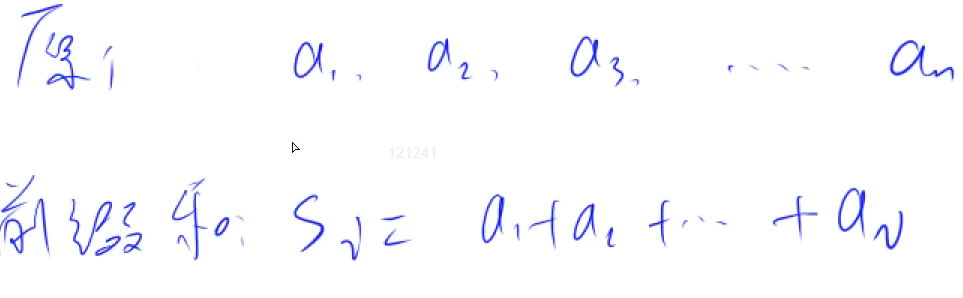 原: a₁, a₂, a₃, ..... aₙ
121241
前缀和: Sᵢ = a₁+a₂+...+aᵢ